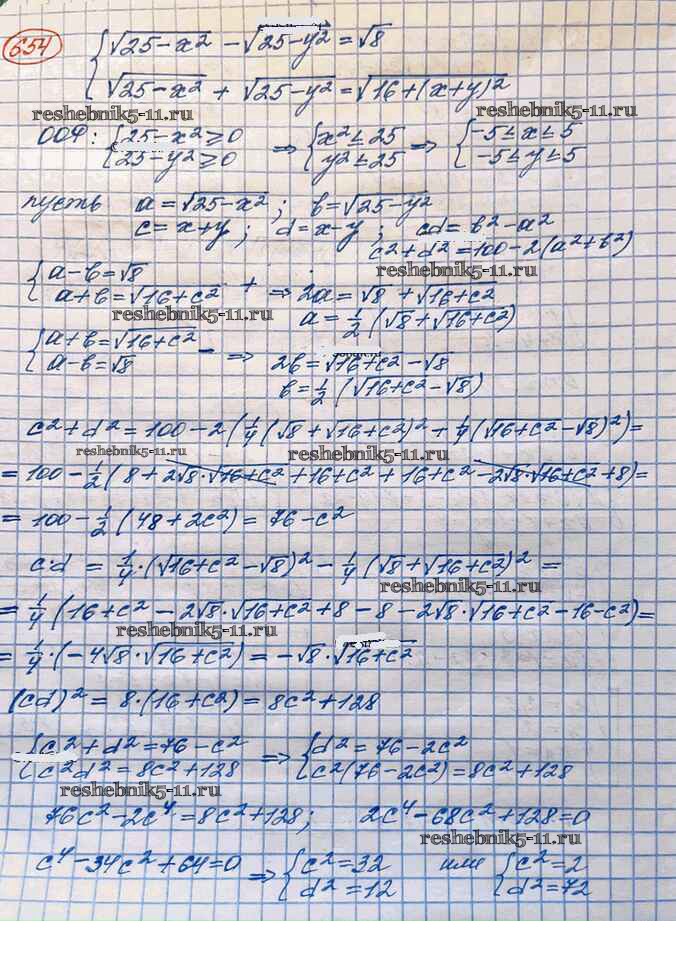 654
{ √25-x² - √25-y² = √8
{ √25-x² + √25-y² = √16+(x+y)²
reshebnik5-11.ru reshebnik5-11.ru
ООФ: { 25-x² ≥ 0 ⇒ { x² ≤ 25 ⇒ { -5 ≤ x ≤ 5
{ 25-y² ≥ 0 { y² ≤ 25 { -5 ≤ y ≤ 5
пусть a = √25-x² ; b = √25-y²
c = x+y ; d = x-y ; cd = b²-a²
c²+d² = 100-2(a²+b²)
reshebnik5-11.ru
{ a-b = √8
{ a+b = √16+c² + ⇒ 2a = √8 + √16+c²
reshebnik5-11.ru
a = 1/2 (√8 + √16+c²)
{ a+b = √16+c²
{ a-b = √8 - ⇒ 2b = √16+c² - √8
b = 1/2 (√16+c² - √8)
c²+d² = 100-2(1/4(√8+√16+c²)² + 1/4(√16+c²-√8)²) =
reshebnik5-11.ru reshebnik5-11.ru
= 100 - 1/2 (8 + 2√8·√16+c² + 16+c² + 16+c² - 2√8·√16+c² + 8) =
= 100 - 1/2 (48+2c²) = 76-c²
c·d = 1/4·(√16+c² - √8)² - 1/4(√8 + √16+c²)² =
reshebnik5-11.ru
= 1/4 (16+c² - 2√8·√16+c² + 8 - 8 - 2√8·√16+c² - 16-c²) =
reshebnik5-11.ru
= 1/4·(-4√8·√16+c²) = -√8·√16+c²
(cd)² = 8·(16+c²) = 8c²+128
{ c²+d² = 76-c² ⇒ { d² = 76-2c²
{ c²d² = 8c²+128 { c²(76-2c²) = 8c²+128
reshebnik5-11.ru
76c²-2c⁴ = 8c²+128; 2c⁴-68c²+128=0
reshebnik5-11.ru
c⁴-34c²+64=0 ⇒ { c²=32 или { c²=2
{ d²=12 { d²=72